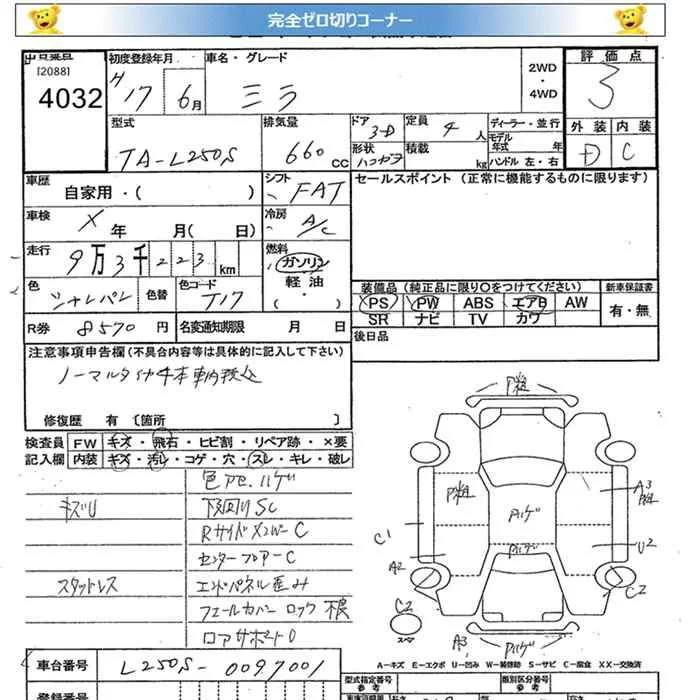 完全ゼロ切りコーナー
出品番号 初度登録年月 車名・グレード 2WD・4WD 評価点
[2088]
4032 H17 6月 ミラ 3
型式 排気量 ドア 3-D 定員 4人 ディーラー・並行 外装 内装
モデル年式 年
TA-L250S 660cc 形状 ハコガタ 積載 kg ハンドル 左・右 D C
車歴 シフト セールスポイント (正常に機能するものに限ります)
自家用・( ) FAT
車検 X年 月( 日) 冷房 A/C
走行 9万3千223km 燃料 ガソリン
軽油
・( )
色 シャンパン 色替 色コード T17 装備品 (純正品に限り○をつけてください) 新車保証書
PS PW ABS エアB AW 有・無
R券 8570円 名変通知期限 月 日 SR ナビ TV カワ
後日品
注意事項申告欄 (不具合内容等は具体的に記入して下さい)
ノーマルタイヤ4本車内積込
修復歴 有 〔箇所 〕
検査員 FW キズ・飛石・ヒビ割・リペア跡・×要
記入欄 内装 キズ・汚レ・コゲ・穴・スレ・キレ・破レ
色アセ、ハゲ
キズU 下回りSC
RサイドメンバーC
センターフロアーC
スタッドレス エンドパネル歪み
フューエルカバーロック不良
ロアサポートD
P粗
P粗 A3
P粗
ハゲ
C1 U2
ハゲ
A2
C2 C2
スペア
A3 ハゲ
A-キズ E-エクボ U-凹み W-補修跡 S-サビ C-腐食 XX-交換済
車台番号 L250S-0097001 型式指定番号 類別区分番号
参考 参考
登録番号